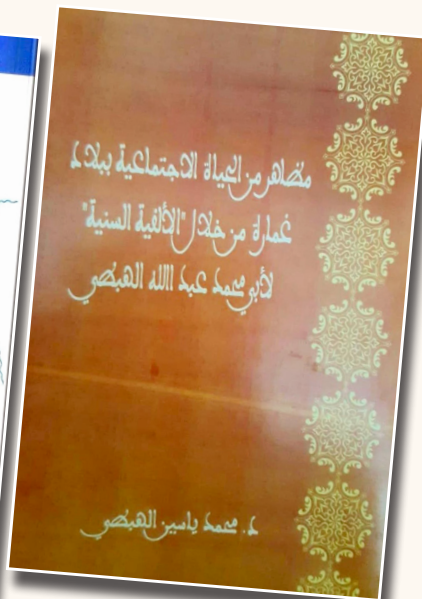 مظاهر من الحياة الاجتماعية ببلاد
غمارة من خلال "الألفية السنية"
لأبي محمد عبد الله الهبطي
د. محمد ياسين الهبطي